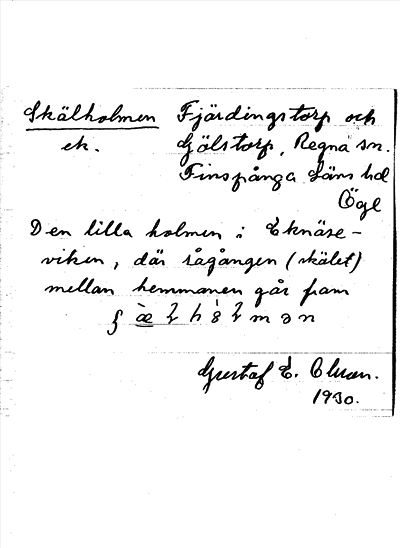 Skälholmen Fjärdingstorp och
ek. Gölstorp, Regna sn.
Finspånga läns hd
Ögl
Den lilla holmen i Eknäse-
viken, där rågången (skälet)
mellan hemmanen går fram
Gustaf E.
1930.